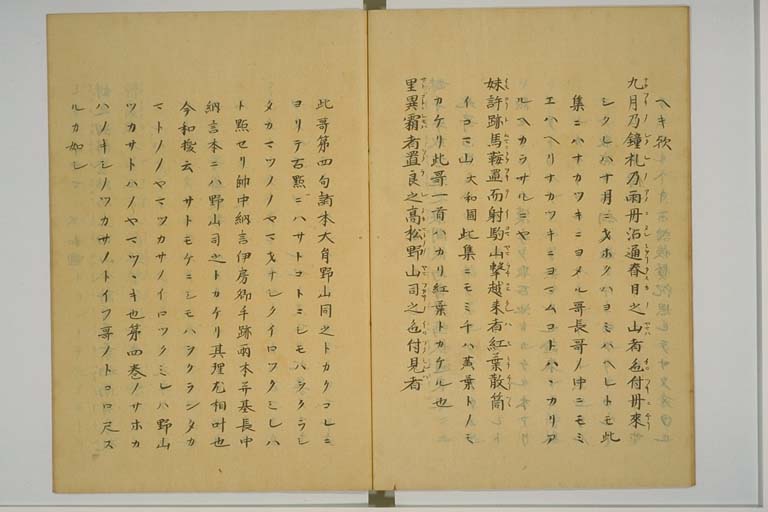 ヘキ歟
九月乃鐘礼乃雨丹沾通春日之山者色付丹來
シクレハ十月ニソオホクハヨミハヘレトモ此
集ニハナカツキニヨメル哥長哥ノ中ニモミ
エハヘリナカツキニヨマムコトハヽカリア
ルヘカラサルニヤ
妹許跡馬鞍置而射駒山撃越来者紅葉散筒
イコマ山大和國此集ニモミチハ黄葉トノミ
カケリ此哥一首ハカリ紅葉トカケル也
里異霜者置良之高松野山司之色付見者
此哥第四句諸本大角野山同之トカクコレニ
ヨリテ古點ニハサトコトニシモハヲクラシ
タカマツノノヤマソナシクイロツクミレハ
ト點セリ帥中納言伊房卿手跡兩本并基長中
納言本ニハ野山司之トカケリ其理尤相叶也
今和換云サトモケニシモハヲクラシタカ
マトノノヤマツカサノイロツクミレハ野山
ツカサトハノヤマツヽキ也第四巻ノサホカ
ハノキシノツカサノトイフ哥ノトコロ尺ス
ルカ如シ